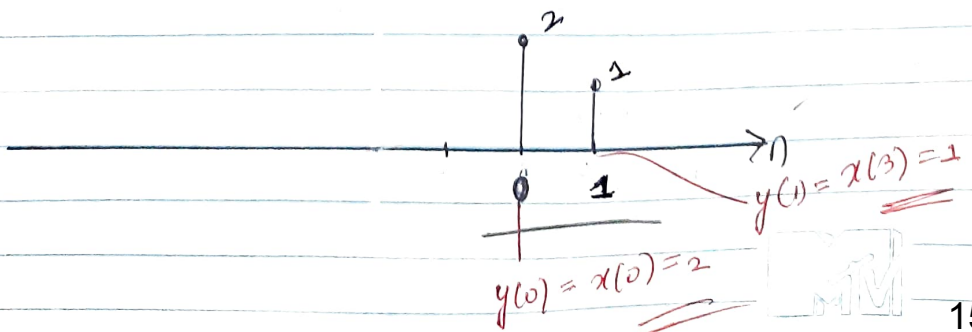 2
1
n
0 1
y(1) = x(3) = 1
y(0) = x(0) = 2
MTV